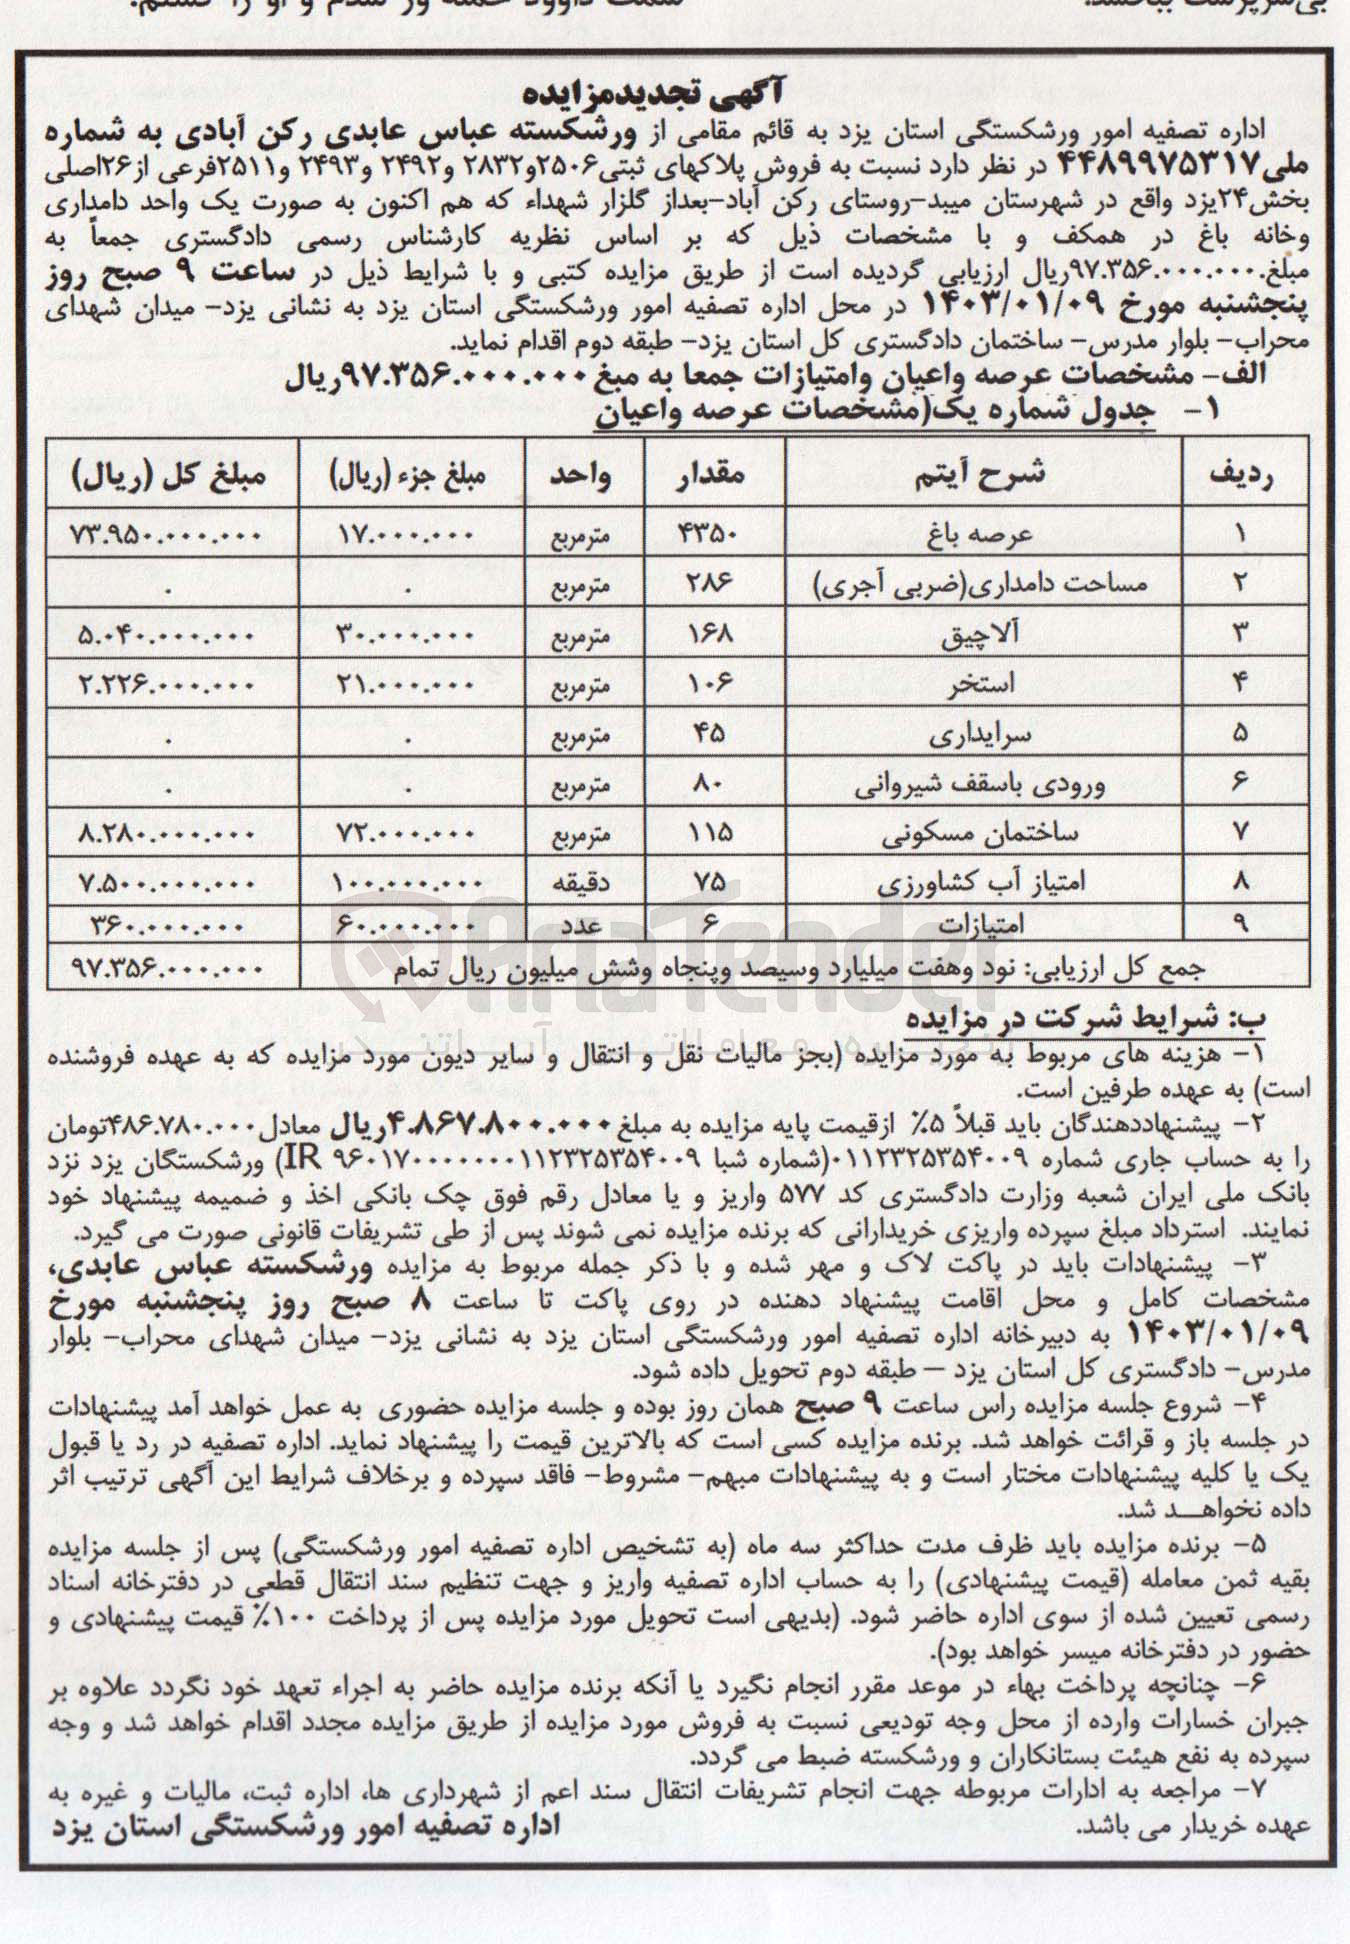 سمت داوود حمله ور شدم و او را کشتم.
بی‌سرپرست ببخشد.
آگهی تجدیدمزایده
اداره تصفیه امور ورشکستگی استان یزد به قائم مقامی از ورشکسته عباس عابدی رکن آبادی به شماره
ملی۴۴۸۹۹۷۵۳۱۷ در نظر دارد نسبت به فروش پلاکهای ثبتی۲۵۰۶و۲۸۳۲ و۲۴۹۲ و۲۴۹۳ و۲۵۱۱فرعی از۲۶اصلی
بخش۲۴یزد واقع در شهرستان میبد-روستای رکن آباد-بعداز گلزار شهداء که هم اکنون به صورت یک واحد دامداری
وخانه باغ در همکف و با مشخصات ذیل که بر اساس نظریه کارشناس رسمی دادگستری جمعاً به
مبلغ۹۷.۳۵۶.۰۰۰.۰۰۰ریال ارزیابی گردیده است از طریق مزایده کتبی و با شرایط ذیل در ساعت ۹ صبح روز
پنجشنبه مورخ ۱۴۰۳/۰۱/۰۹ در محل اداره تصفیه امور ورشکستگی استان یزد به نشانی یزد- میدان شهدای
محراب- بلوار مدرس- ساختمان دادگستری کل استان یزد- طبقه دوم اقدام نماید.
الف- مشخصات عرصه واعیان وامتیازات جمعا به مبغ ۹۷.۳۵۶.۰۰۰.۰۰۰ریال
۱- جدول شماره یک(مشخصات عرصه واعیان
ردیف شرح آیتم مقدار واحد مبلغ جزء (ریال) مبلغ کل (ریال)
۱ عرصه باغ ۴۳۵۰ مترمربع ۱۷.۰۰۰.۰۰۰ ۷۳.۹۵۰.۰۰۰.۰۰۰
۲ مساحت دامداری(ضربی آجری) ۲۸۶ مترمربع ۰ ۰
۳ آلاچیق ۱۶۸ مترمربع ۳۰.۰۰۰.۰۰۰ ۵.۰۴۰.۰۰۰.۰۰۰
۴ استخر ۱۰۶ مترمربع ۲۱.۰۰۰.۰۰۰ ۲.۲۲۶.۰۰۰.۰۰۰
۵ سرایداری ۴۵ مترمربع ۰ ۰
۶ ورودی باسقف شیروانی ۸۰ مترمربع ۰ ۰
۷ ساختمان مسکونی ۱۱۵ مترمربع ۷۲.۰۰۰.۰۰۰ ۸.۲۸۰.۰۰۰.۰۰۰
۸ امتیاز آب کشاورزی ۷۵ دقیقه ۱۰۰.۰۰۰.۰۰۰ ۷.۵۰۰.۰۰۰.۰۰۰
۹ امتیازات ۶ عدد ۶۰.۰۰۰.۰۰۰ ۳۶۰.۰۰۰.۰۰۰
جمع کل ارزیابی: نود وهفت میلیارد وسیصد وپنجاه وشش میلیون ریال تمام ۹۷.۳۵۶.۰۰۰.۰۰۰
AriaTender
ب: شرایط شرکت در مزایده
۱- هزینه های مربوط به مورد مزایده (بجز مالیات نقل و انتقال و سایر دیون مورد مزایده که به عهده فروشنده
است) به عهده طرفین است.
۲- پیشنهاددهندگان باید قبلاً ۵٪ ازقیمت پایه مزایده به مبلغ ۴.۸۶۷.۸۰۰.۰۰۰ریال معادل۴۸۶.۷۸۰.۰۰۰تومان
را به حساب جاری شماره ۰۱۱۲۳۲۵۳۵۴۰۰۹(شماره شبا IR ۹۶۰۱۷۰۰۰۰۰۰۰۰۱۱۲۳۲۵۳۵۴۰۰۹) ورشکستگان یزد نزد
بانک ملی ایران شعبه وزارت دادگستری کد ۵۷۷ واریز و یا معادل رقم فوق چک بانکی اخذ و ضمیمه پیشنهاد خود
نمایند. استرداد مبلغ سپرده واریزی خریدارانی که برنده مزایده نمی شوند پس از طی تشریفات قانونی صورت می گیرد.
۳- پیشنهادات باید در پاکت لاک و مهر شده و با ذکر جمله مربوط به مزایده ورشکسته عباس عابدی،
مشخصات کامل و محل اقامت پیشنهاد دهنده در روی پاکت تا ساعت ۸ صبح روز پنجشنبه مورخ
۱۴۰۳/۰۱/۰۹ به دبیرخانه اداره تصفیه امور ورشکستگی استان یزد به نشانی یزد- میدان شهدای محراب- بلوار
مدرس- دادگستری کل استان یزد – طبقه دوم تحویل داده شود.
۴- شروع جلسه مزایده راس ساعت ۹ صبح همان روز بوده و جلسه مزایده حضوری به عمل خواهد آمد پیشنهادات
در جلسه باز و قرائت خواهد شد. برنده مزایده کسی است که بالاترین قیمت را پیشنهاد نماید. اداره تصفیه در رد یا قبول
یک یا کلیه پیشنهادات مختار است و به پیشنهادات مبهم- مشروط- فاقد سپرده و برخلاف شرایط این آگهی ترتیب اثر
داده نخواهـــد شد.
۵- برنده مزایده باید ظرف مدت حداکثر سه ماه (به تشخیص اداره تصفیه امور ورشکستگی) پس از جلسه مزایده
بقیه ثمن معامله (قیمت پیشنهادی) را به حساب اداره تصفیه واریز و جهت تنظیم سند انتقال قطعی در دفترخانه اسناد
رسمی تعیین شده از سوی اداره حاضر شود. (بدیهی است تحویل مورد مزایده پس از پرداخت ۱۰۰٪ قیمت پیشنهادی و
حضور در دفترخانه میسر خواهد بود).
۶- چنانچه پرداخت بهاء در موعد مقرر انجام نگیرد یا آنکه برنده مزایده حاضر به اجراء تعهد خود نگردد علاوه بر
جبران خسارات وارده از محل وجه تودیعی نسبت به فروش مورد مزایده از طریق مزایده مجدد اقدام خواهد شد و وجه
سپرده به نفع هیئت بستانکاران و ورشکسته ضبط می گردد.
۷- مراجعه به ادارات مربوطه جهت انجام تشریفات انتقال سند اعم از شهرداری ها، اداره ثبت، مالیات و غیره به
عهده خریدار می باشد.
اداره تصفیه امور ورشکستگی استان یزد